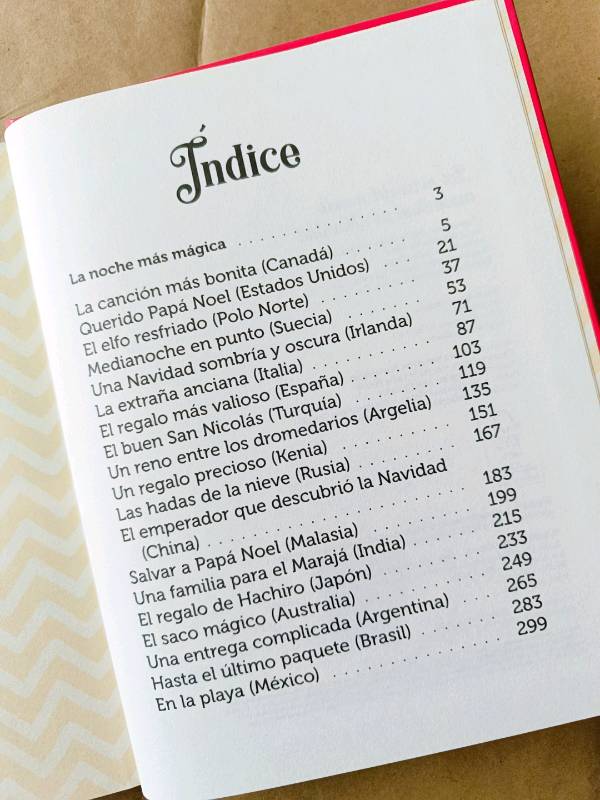 Índice
La noche más mágica . . . . . . . . . . . . . . . 3
La canción más bonita (Canadá) . . . . . . 5
Querido Papá Noel (Estados Unidos) . . . 21
El elfo resfriado (Polo Norte) . . . . . . . . . 37
Medianoche en punto (Suecia) . . . . . . . . 53
Una Navidad sombría y oscura (Irlanda) 71
La extraña anciana (Italia) . . . . . . . . . . . 87
El regalo más valioso (España) . . . . . . . . 103
El buen San Nicolás (Turquía) . . . . . . . . 119
Un reno entre los dromedarios (Argelia) 135
Un regalo precioso (Kenia) . . . . . . . . . . . 151
Las hadas de la nieve (Rusia) . . . . . . . . . 167
El emperador que descubrió la Navidad
(China) . . . . . . . . . . . . . . . . . . . . . . 183
Salvar a Papá Noel (Malasia) . . . . . . . . . 199
Una familia para el Marajá (India) . . . . . 215
El regalo de Hachiro (Japón) . . . . . . . . . 233
El saco mágico (Australia) . . . . . . . . . . . 249
Una entrega complicada (Argentina) . . . 265
Hasta el último paquete (Brasil) . . . . . . . 283
En la playa (México) . . . . . . . . . . . . . . . 299